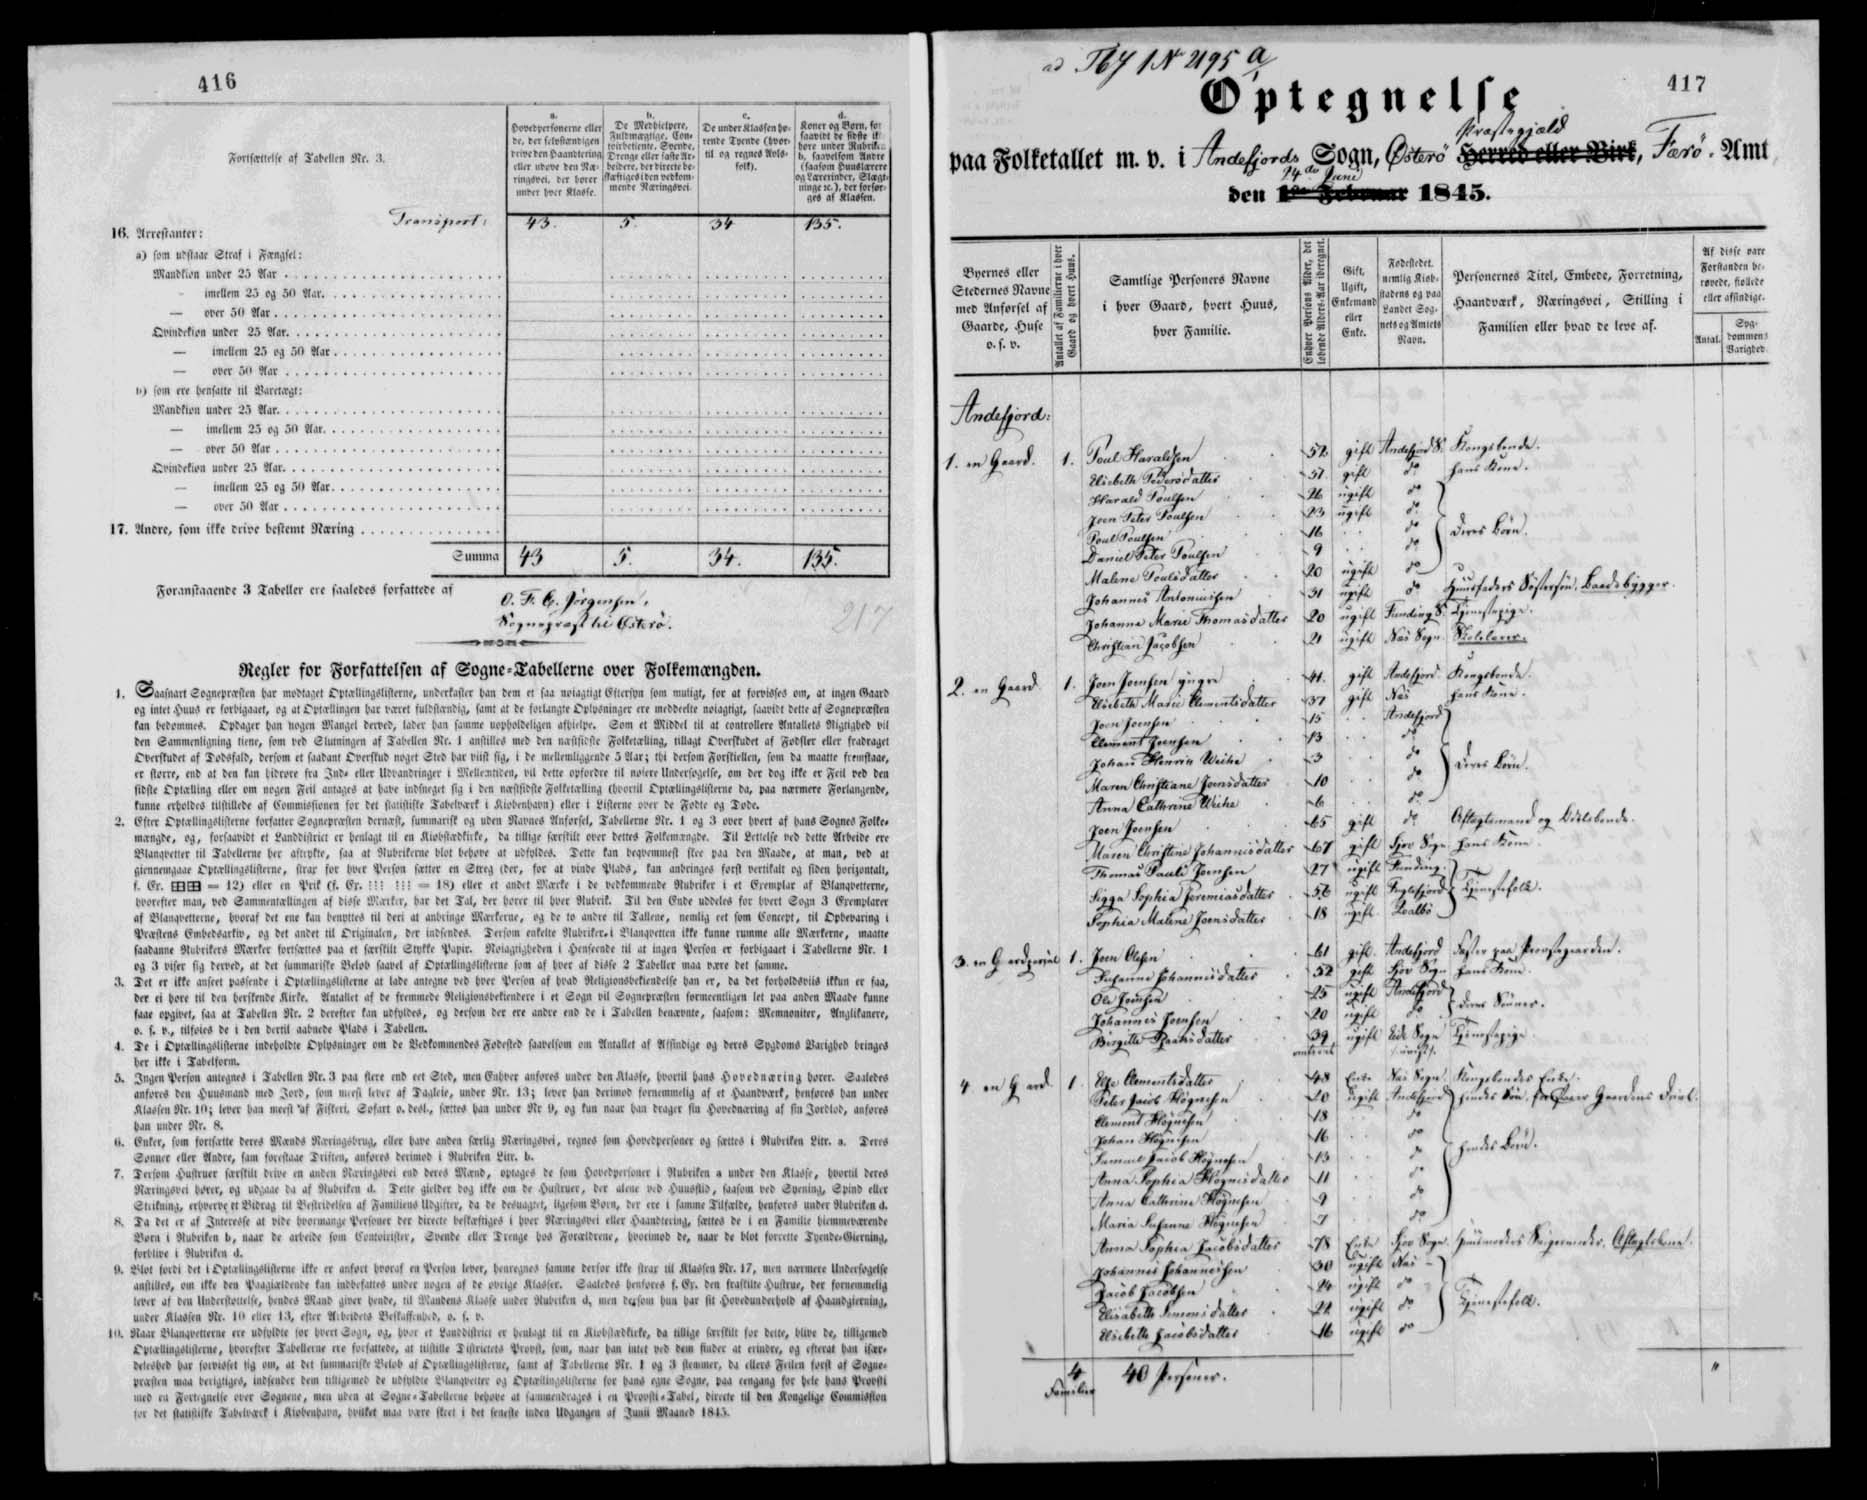 416
Fortsættelse af Tabellen Nr. 3.
a. Hovedpersonerne eller de, der selvstændigen drive den Haandtering eller udøve den Næringsvei, der hører under hver Klasse.
b. De Medhielpere, Fuldmægtige, Contoirbetiente, Svende, Drenge eller faste Arbeidere, der directe beskæftiges i den vedkommende Næringsvei.
c. De under Klassen hørende Tyende (hvortil og regnes Avlsfolk).
d. Koner og Børn, for saavidt de sidste ikke høre under Rubriken b, saavelsom Andre (saasom Huuslærere og Lærerinder, Slægtninge ic.), der forsørges af Klassen.
Transport: 43. 5. 34 135.
16. Arrestanter:
a) som udstaae Straf i Fængsel:
Mandkiøn under 25 Aar
— imellem 25 og 50 Aar.
— over 50 Aar
Qvindekiøn under 25 Aar.
— imellem 25 og 50 Aar
— over 50 Aar
b) som ere hensatte til Varetægt:
Mandkiøn under 25 Aar.
— imellem 25 og 50 Aar.
— over 50 Aar
Qvindekiøn under 25 Aar.
— imellem 25 og 50 Aar.
— over 50 Aar
17. Andre, som ikke drive bestemt Næring
Summa 43 5. 34. 135.
Foranstaaende 3 Tabeller ere saaledes forfattede af
O. F. C. Jørgensen,
Sognepræst til Østerø.
217
Regler for Forfattelsen af Sogne-Tabellerne over Folkemængden.
1. Saasnart Sognepræsten har modtaget Optællingslisterne, underkaster han dem et saa nøiagtigt Eftersyn som muligt, for at forvisses om, at ingen Gaard
og intet Huus er forbigaaet, og at Optællingen har været fuldstændig, samt at de forlangte Oplysninger ere meddeelte nøiagtigt, saavidt dette af Sognepræsten
kan bedømmes. Opdager han nogen Mangel derved, lader han samme uopholdeligen afhielpe. Som et Middel til at controllere Antallets Rigtighed vil
den Sammenligning tiene, som ved Slutningen af Tabellen Nr. 1 anstilles med den næstsidste Folketælling, tillagt Overskudet af Fødsler eller fradraget
Overskudet af Dødsfald, dersom et saadant Overskud noget Sted har viist sig, i de mellemliggende 5 Aar; thi dersom Forskiellen, som da maatte fremstaae,
er større, end at den kan hidrøre fra Ind- eller Udvandringer i Mellemtiden, vil dette opfordre til nøiere Undersøgelse, om der dog ikke er Feil ved den
sidste Optælling eller om nogen Feil antages at have indsneget sig i den næstsidste Folketælling (hvortil Optællingslisterne da, paa nærmere Forlangende,
kunne erholdes tilstillede af Commissionen for det statistiske Tabelværk i Kiøbenhavn) eller i Listerne over de Fødte og Døde.
2. Efter Optællingslisterne forfatter Sognepræsten dernæst, summarisk og uden Navnes Anførsel, Tabellerne Nr. 1 og 3 over hvert af hans Sognes Folke-
mængde, og, forsaavidt et Landdistrict er henlagt til en Kiøbstædkirke, da tillige særskilt over dettes Folkemængde. Til Lettelse ved dette Arbeide ere
Blanqvetter til Tabellerne her aftrykte, saa at Rubrikerne blot behøve at udfyldes. Dette kan beqvemmest skee paa den Maade, at man, ved at
giennemgaae Optællingslisterne, strax for hver Person sætter en Streg (der, for at vinde Plads, kan anbringes først vertikalt og siden horizontalt,
f. Ex. = 12) eller en Prik (f. Ex. ⁝⁝⁝ ⁝⁝⁝ = 18) eller et andet Mærke i de vedkommende Rubriker i et Exemplar af Blanqvetterne,
hvorefter man, ved Sammentællingen af disse Mærker, har det Tal, der hører til hver Rubrik. Til den Ende uddeles for hvert Sogn 3 Exemplarer
af Blanqvetterne, hvoraf det ene kan benyttes til deri at anbringe Mærkerne, og de to andre til Tallene, nemlig eet som Concept, til Opbevaring i
Præstens Embedsarkiv, og det andet til Originalen, der indsendes. Dersom enkelte Rubriker i Blanqvetten ikke kunne rumme alle Mærkerne, maatte
saadanne Rubrikers Mærker fortsættes paa et særskilt Stykke Papir. Nøiagtigheden i Henseende til at ingen Person er forbigaaet i Tabellerne Nr. 1
og 3 viser sig derved, at det summariske Beløb saavel af Optællingslisterne som af hver af disse 2 Tabeller maa være det samme.
3. Det er ikke anseet passende i Optællingslisterne at lade antegne ved hver Person af hvad Religionsbekiendelse han er, da det forholdsviis ikkun er faa,
der ei høre til den herskende Kirke. Antallet af de fremmede Religionsbekiendere i et Sogn vil Sognepræsten formeentligen let paa anden Maade kunne
faae opgivet, saa at Tabellen Nr. 2 derefter kan udfyldes, og dersom der ere andre end de i Tabellen benævnte, saasom: Memnoniter, Anglikanere,
o. s. v., tilføies de i den dertil aabnede Plads i Tabellen.
4. De i Optællingslisterne indeholdte Oplysninger om de Vedkommendes Fødested saavelsom om Antallet af Afsindige og deres Sygdoms Varighed bringes
her ikke i Tabelform.
5. Ingen Person antegnes i Tabellen Nr. 3 paa flere end eet Sted, men Enhver anføres under den Klasse, hvortil hans Hovednæring hører. Saaledes
anføres den Huusmand med Jord, som meest lever af Dagleie, under Nr. 13; lever han derimod fornemmelig af et Haandværk, henføres han under
Klassen Nr. 10; lever han meest af Fiskeri, Søfart o. desl., sættes han under Nr 9, og kun naar han drager sin Hovednæring af sin Jordlod, anføres
han under Nr. 8.
6. Enker, som fortsætte deres Mænds Næringsbrug, eller have anden særlig Næringsvei, regnes som Hovedpersoner og sættes i Rubriken Litr. a. Deres
Sønner eller Andre, sam forestaae Driften, anføres derimod i Rubriken Litr. b.
7. Dersom Hustruer særskilt drive en anden Næringsvei end deres Mænd, optages de som Hovedpersoner i Rubriken a under den Klasse, hvortil deres
Næringsvei hører, og udgaae da af Rubriken d. Dette gielder dog ikke om de Hustruer, der alene ved Huusflid, saasom ved Syening, Spind eller
Strikning, erhverve et Bidrag til Bestridelsen af Familiens Udgifter, da de desuagtet, ligesom Børn, der ere i samme Tilfælde, henføres under Rubriken d.
8. Da det er af Interesse at vide hvormange Personer der directe beskæftiges i hver Næringsvei eller Haandtering, sættes de i en Familie hiemmeværende
Børn i Rubriken b, naar de arbeide som Contoirister, Svende eller Drenge hos Forældrene, hvorimod de, naar de blot forrette Tyende-Gierning,
forblive i Rubriken d.
9. Blot fordi det i Optællingslisterne ikke er anført hvoraf en Person lever, henregnes samme derfor ikke strax til Klassen Nr. 17, men nærmere Undersøgelse
anstilles, om ikke den Paagiældende kan indbefattes under nogen af de øvrige Klasser. Saaledes henføres f. Ex. den fraskilte Hustrue, der fornemmelig
lever af den Understøttelse, hendes Mand giver hende, til Mandens Klasse under Rubriken d, men dersom hun har sit Hovedunderhold af Haandgierning,
under Klassen Nr. 10 eller 13, efter Arbeidets Beskaffenhed, o. s. v.
10. Naar Blanqvetterne ere udfyldte for hvert Sogn, og, hvor et Landdistrict er henlagt til en Kiøbstædkirke, da tillige særskilt for dette, blive de, tilligemed
Optællingslisterne, hvorefter Tabellerne ere forfattede, at tilstille Districtets Provst, som, naar han intet ved dem finder at erindre, og efterat han især-
deleshed har forvisset sig om, at det summariske Beløb af Optællingslisterne, samt af Tabellerne Nr. 1 og 3 stemmer, da ellers Feilen først af Sogne-
præsten maa berigtiges, indsender dem tilligemed de udfyldte Blanqvetter og Optællingslisterne for hans egne Sogne, paa eengang for hele hans Provsti
med en Fortegnelse over Sognene, men uden at Sogne-Tabellerne behøve at sammendrages i en Provsti-Tabel, directe til den Kongelige Commission
for det statistiske Tabelværk i Kiøbenhavn, hvilket maa være skeet i det seneste inden Udgangen af Junii Maaned 1845.
417
Optegnelse
Præstegjæld
paa Folketallet m. v. i Andefjords Sogn, Østerø Herred eller Birk, Færø. Amt
24de Juni
den 1ste Februar 1845.
Byernes eller Stedernes Navne med Anførsel af Gaarde, Huse o. s. v.
Antallet af Familierne i hver Gaard og hvert Huus.
Samtlige Personers Navne i hver Gaard, hvert Huus, hver Familie.
Enhver Persons Alder, det løbende Alders-Aar iberegnet.
Gift, Ugift, Enkemand eller Enke.
Fødestedet, nemlig Kiøbstadens og paa Landet Sognets og Amtets Navn.
Personernes Titel, Embede, Forretning, Haandværk, Næringsvei, Stilling i Familien eller hvad de leve af.
Af disse vare Forstanden berøvede, fiollede eller afsindige.
Antal. Sygdommens Varighed.
Andefjord:
1. en Gaard. 1. Poul Haraldsen 52 gift Andefjord S. Kongsbonde.
Elsebeth Pedersdatter 51 gift do hans Kone.
Harald Poulsen 26 ugift do
Joen Peter Poulsen 23 ugift do
Poul Poulsen 16 do Deres Børn.
Daniel Peter Poulsen 9 do
Malene Poulsdatter 20 ugift do
Johannes Antoniusen 31 ugift do Huusfaders Søstersøn, Baadebygger.
Johanne Marie Thomasdatter 20 ugift Funding S. Tjenestepige.
Christian Jacobsen 21 ugift Næs Sogn. Skolelærer.
2. en Gaard 1. Joen Joensen yngre 41. gift Andefjord. Kongsbonde.
Elsebeth Marie Clementsdatter 37 gift Næs hans Kone.
Joen Joensen 15 Andefjord
Clement Joensen 13 do
Johan Henrik Weihe 3 do Deres Børn.
Maren Christiane Joensdatter 10 do
Anna Cathrine Weihe 6 do
Joen Joensen 65 gift do Aftægtsmand og Odelsbonde.
Maren Christine Johannesdatter 67 gift Sjov Sogn hans Kone.
Thomas Pauli Joensen 27 ugift Funding
Sigga Sophia Jeremiasdatter 56 ugift Fuglefjord Tjenestefolk.
Sophia Malene Joensdatter 18 ugift
3. en Gaardpart 1. Joen Olesen 61 gift Andefjord Fæster paa Præstegaarden.
Susanne Johannesdatter 52 gift Sjov Sogn hans Kone.
Ole Joensen 25 ugift Andefjord
Johannes Joensen 20 ugift do Deres Sønner.
Birgitte 39 ugift Eide Sogn Tjenestepige
4. en Gaard 1 Else Clementsdatter 48 Enke Næs Sogn. Kongsbondes Enke.
Peter Jacob Høgnesen 20 ugift Andefjord hendes Søn, Gaardens Drivt.
Clement Høgnesen 18 do
Johan Høgnesen 16 do
Samuel Jacob Høgnesen 13 do hendes Børn.
Anna Sophia Høgnesdatter 11 do
Anna Cathrine Høgnesen 9 do
Maria Susanne Høgnesen 7 do
Anna Sophia Jacobsdatter 78 Enke Sjov Sogn. Huusmoders Svigermoder, Aftægtskone.
Johannes Johannesen 30 ugift Næs
Jacob Jacobsen 24 ugift do
Elisabeth Simonsdatter 22 ugift do Tjenestefolk.
Elsebeth Jacobsdatter 16 ugift do
4 Familier 40 Personer. "